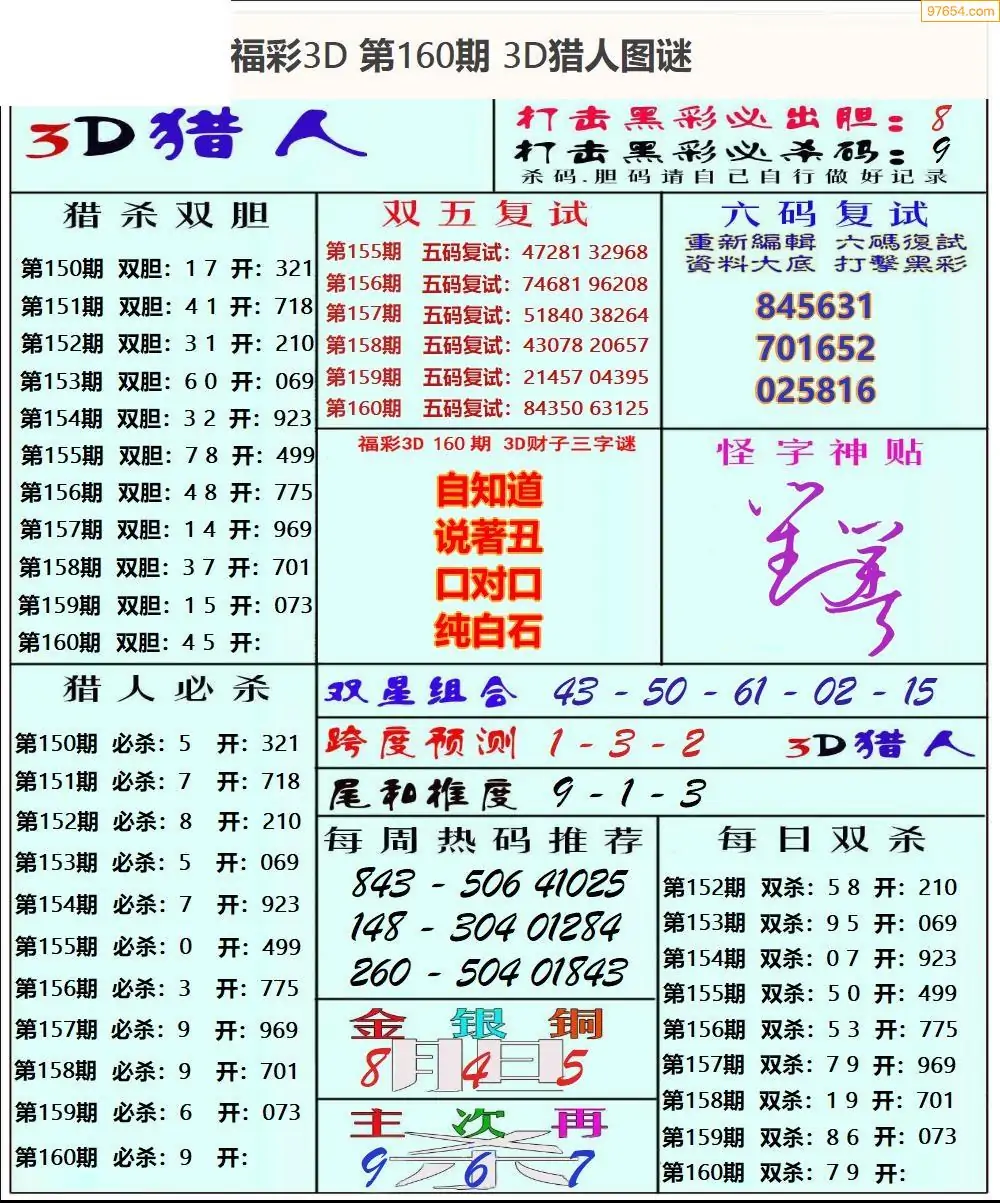 97654.com
福彩3D 第160期 3D猎人图谜
3D猎人
打击黑彩必出胆：8
打击黑彩必杀码：9
杀码.胆码请自己自行做好记录
猎杀双胆
第150期 双胆：17 开：321
第151期 双胆：41 开：718
第152期 双胆：31 开：210
第153期 双胆：60 开：069
第154期 双胆：32 开：923
第155期 双胆：78 开：499
第156期 双胆：48 开：775
第157期 双胆：14 开：969
第158期 双胆：37 开：701
第159期 双胆：15 开：073
第160期 双胆：45 开：
双五复试
第155期 五码复试：47281 32968
第156期 五码复试：74681 96208
第157期 五码复试：51840 38264
第158期 五码复试：43078 20657
第159期 五码复试：21457 04395
第160期 五码复试：84350 63125
六码复试
重新編輯 六碼復試
資料大底 打擊黑彩
845631
701652
025816
福彩3D 160期 3D财子三字谜
自知道
说著丑
口对口
纯白石
怪字神贴
猎人必杀
第150期 必杀：5 开：321
第151期 必杀：7 开：718
第152期 必杀：8 开：210
第153期 必杀：5 开：069
第154期 必杀：7 开：923
第155期 必杀：0 开：499
第156期 必杀：3 开：775
第157期 必杀：9 开：969
第158期 必杀：9 开：701
第159期 必杀：6 开：073
第160期 必杀：9 开：
双星组合 43 - 50 - 61 - 02 - 15
跨度预测 1 - 3 - 2 3D猎人
尾和推度 9 - 1 - 3
每周热码推荐
843 - 506 41025
148 - 304 01284
260 - 504 01843
金银铜
胆
8 4 5
主次再
杀
9 6 7
每日双杀
第152期 双杀：58 开：210
第153期 双杀：95 开：069
第154期 双杀：07 开：923
第155期 双杀：50 开：499
第156期 双杀：53 开：775
第157期 双杀：79 开：969
第158期 双杀：19 开：701
第159期 双杀：86 开：073
第160期 双杀：79 开：